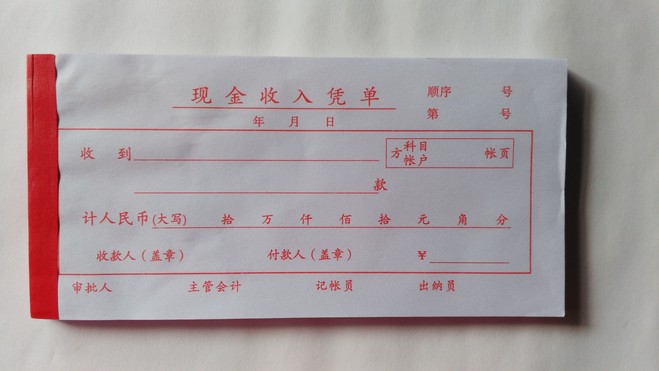 现金收入凭单
顺序 号
年 月 日
第 号
收 到
方 科目 帐户 帐页
款
计人民币(大写) 拾 万 仟 佰 拾 元 角 分
收款人(盖章) 付款人(盖章) ¥
审批人 主管会计 记帐员 出纳员